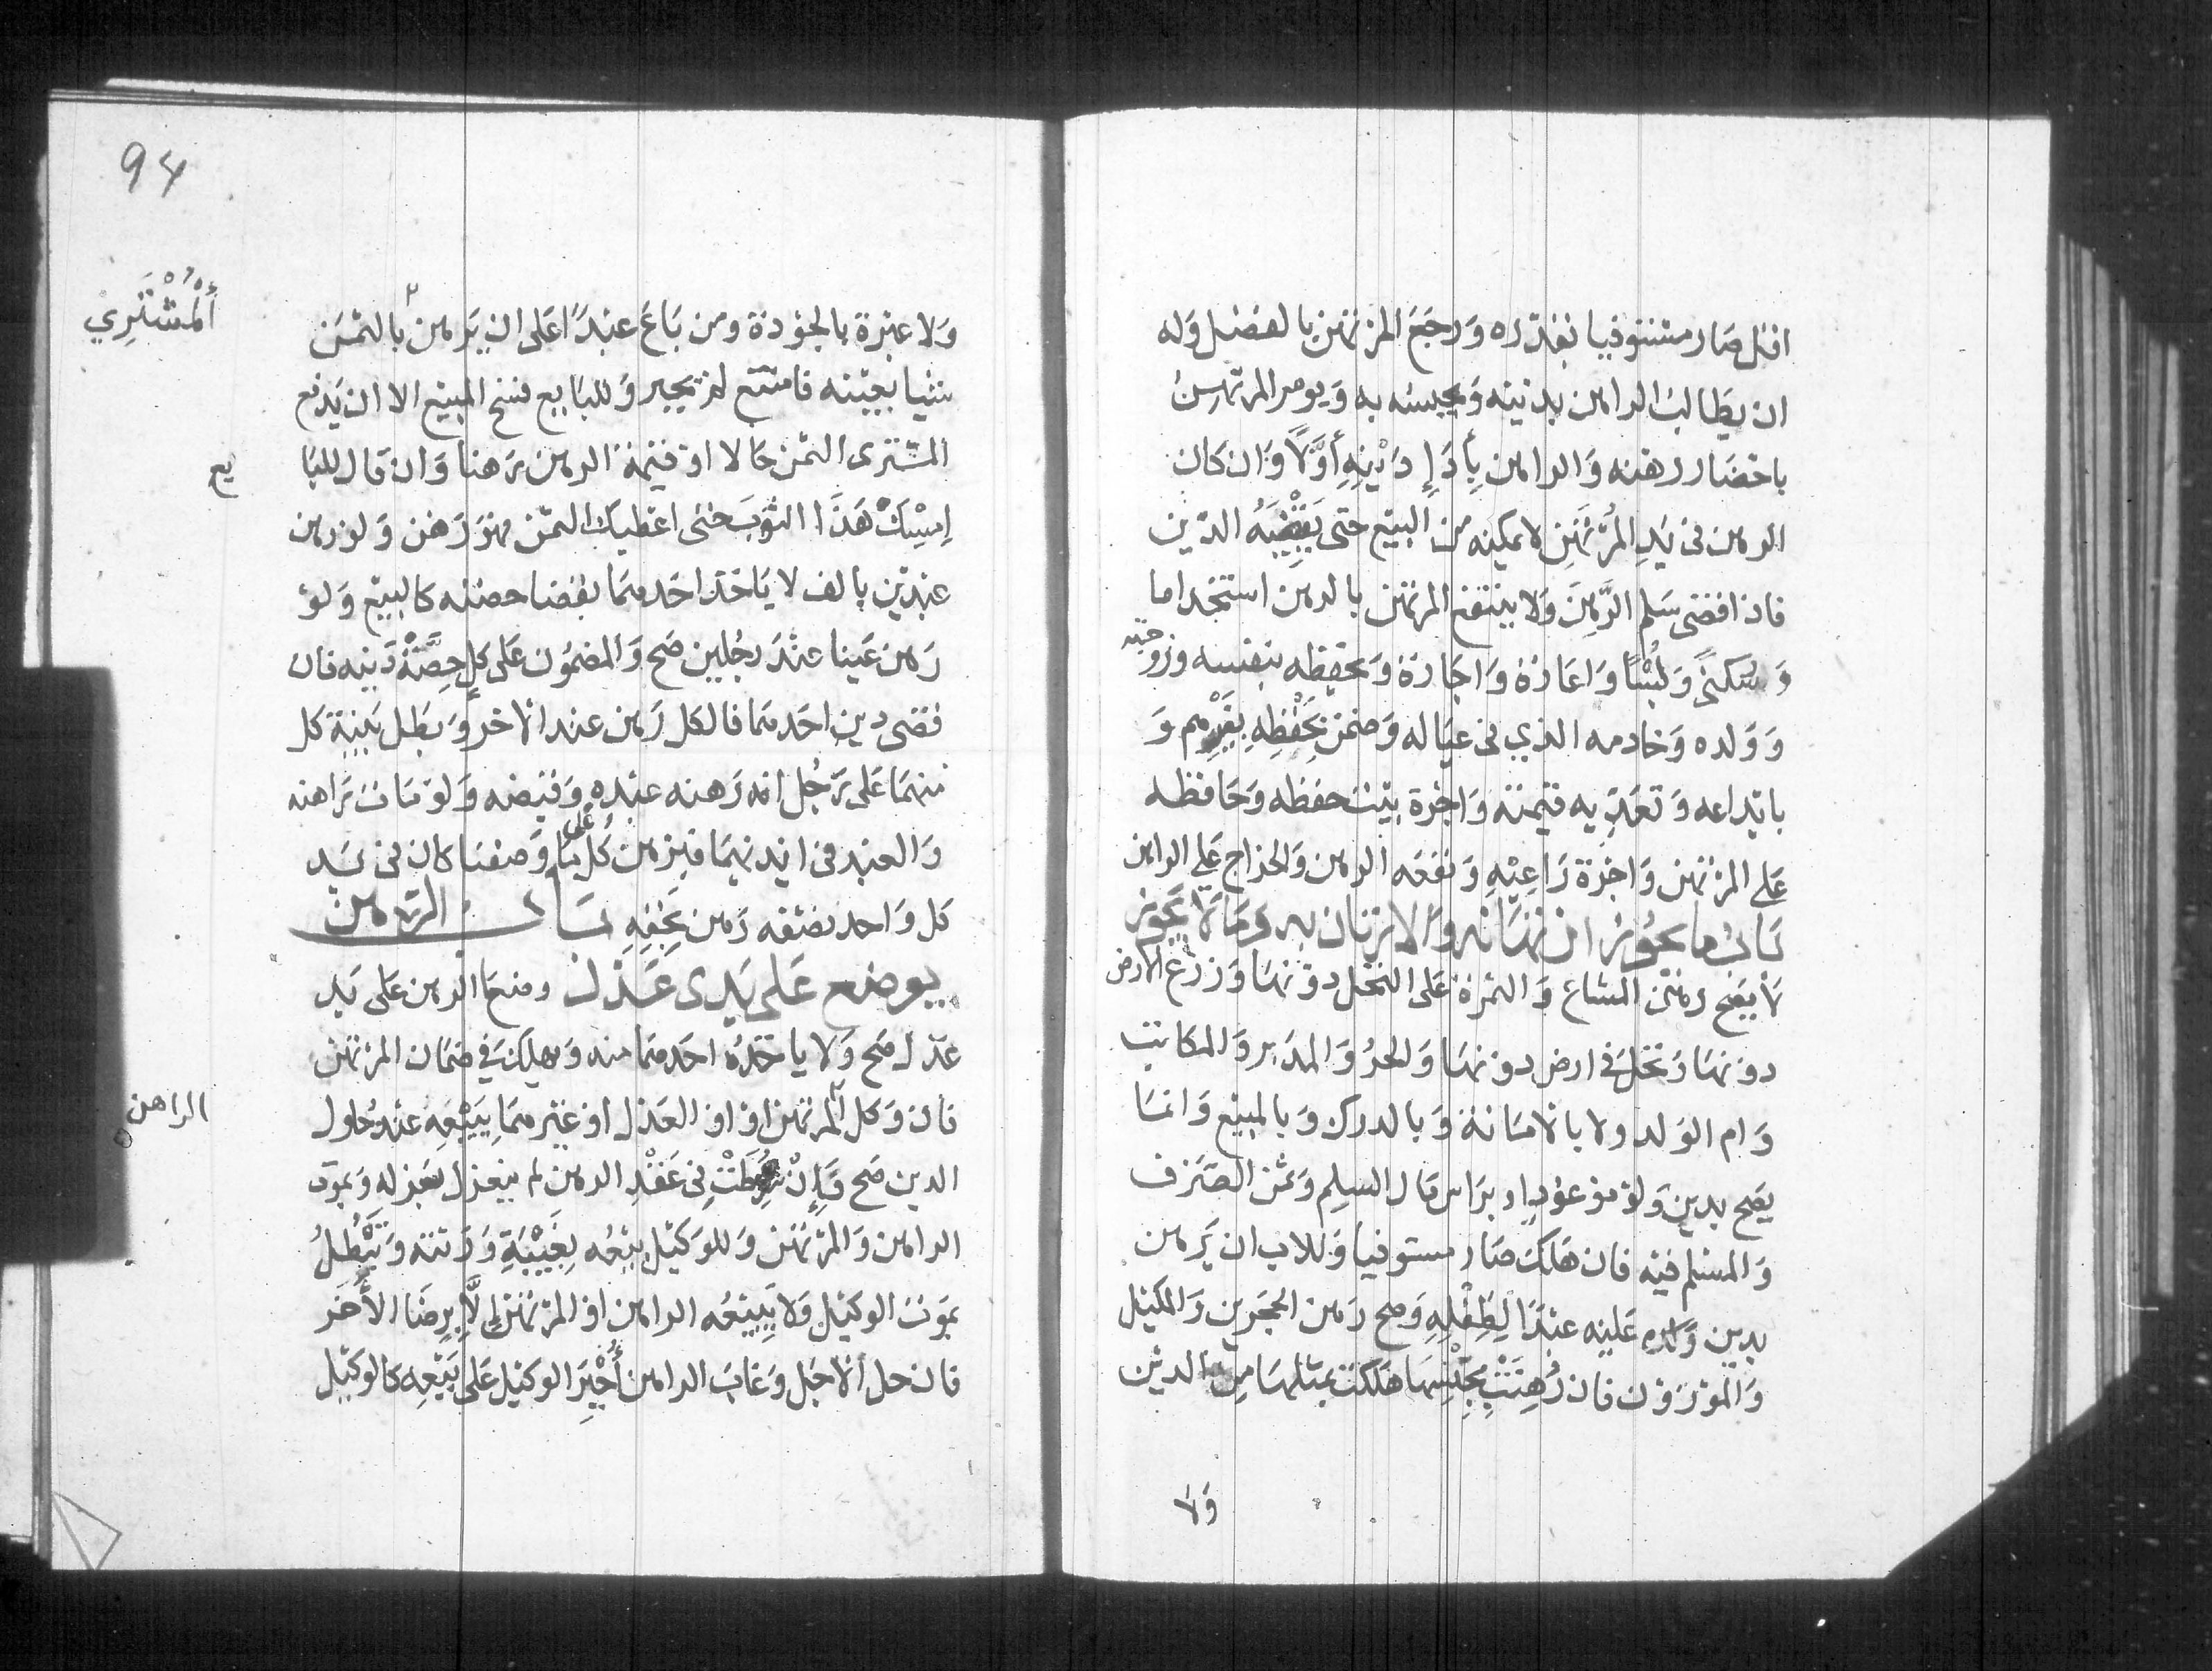 اقل صار مستوفيا بقدره ورجع المرتهن بالفضل وله
ان يطالب الراهن بدينه ويحبسه به ويومر المرتهن
باحضار رهنه والراهن بِأَدَاءِ دَيْنِهِ أَوَّلًا وان كان
الرهن في يَدِ المُرْتَهِنِ لا يمكنه من البيع حتى يَقْبِضَهُ الدين
فاذا قضى سلم الرَّهْنَ ولا ينتفع المرتهن بالرهن استخداما
وسُكنىً وَلُبْسًا واعارة واجارة ويحفظه بنفسه وزوجته
وولده وخادمه الذي في عياله وضمن بِحِفْظِهِ بِغَيْرِهِم و
بايداعه وتعديه قيمته واجرة بيت حفظه وحافظه
على المرتهن واجرة رَاعِيْهِ ونفقه الرهن والخراج على الراهن
باب ما يجوز ارتهانه والارتهان به وما لا يجوز
لا يصح رهن المشاع والثمرة على النخل دونها وزرع الارض
دونها ونخل في ارض دونها والحر والمدبر والمكاتب
وام الولد ولا بالامانة وبالدرك وبالمبيع وانما
يصح بدين ولو موعودا وبراس مال السلم وثمن الصرف
والمسلم فيه فان هلك صار مستوفيا وللاب ان يرهن
بدين عليه عبدا لِطِفْلِهِ وصح رهن الحجرين والمكيل
والموزون فان رُهِنَتْ بِجِنْسِهَا هلكت بمثلها من الدين
ولا
94
ولا عبرة بالجودة ومن باع عبدًا على ان يرهن بالثمن
أَلْمُشْتَرِي
شيا بعينه فامتنع لم يجبر وللبايع فسخ المبيع الا ان يدفع
المشترى الثمن حالا او قيمة الرهن رهنا وان قال للبا
يع
اِمْسِكْ هَذَا الثَّوبَ حتى اعطيك الثمن فهو رهن ولو رهن
عبدين بالف لا ياخذ احدهما بقضا حصته كالبيع ولو
رهن عينا عند رجلين صح والمضمون على كلٍ حِصَّةُ دَينه فان
قضى دين احدهما فالكل رهن عند الاخر وبطل بينة كل
منهما على رجل انه رهنه عبده وقبضه ولو مات راهنه
والعبد في ايديهما فبرهن كل على ما وصفنا كان في يد
كل واحد نصفه رهن بِحَقِّهِ باب الرهن
يوضع على يدى عدل وضعا الرهن على يد
عدل صح ولا ياخذه احدهما منه ويهلك في ضمان المرتهن
فان وكل المرتهن او العدل او غيرهما بِبَيْعِهِ عند حلول
الراهن
الدين صح وَإِنْ شُرِطَتْ فِي عَقْدِ الرهن لم ينعزل بعزله وبموت
الراهن والمرتهن وللوكيل بيعه بِغَيْبَةِ ورثته وَتَبْطُلُ
بموت الوكيل ولا يبيعه الراهن او المرتهن إِلَّا بِرِضَا الأَخَر
فان حل الاجل وغاب الراهن أُجْبِرَ الوكيل على بَيْعِهِ كالوكيل